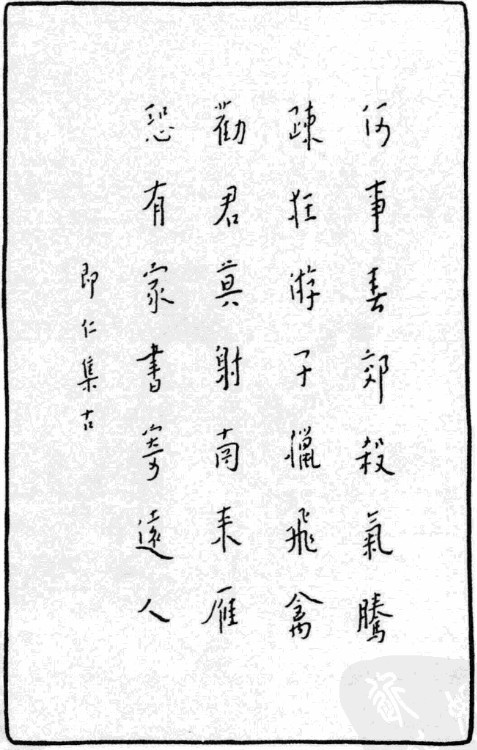 何事春郊殺氣騰
疎狂游子獵飛禽
勸君莫射南來雁
恐有家書寄遠人
即仁集古